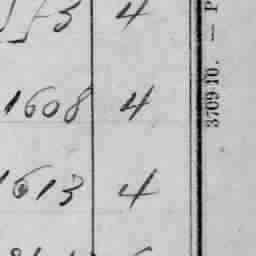 4
1608 4
1613 4
3709-10. — P